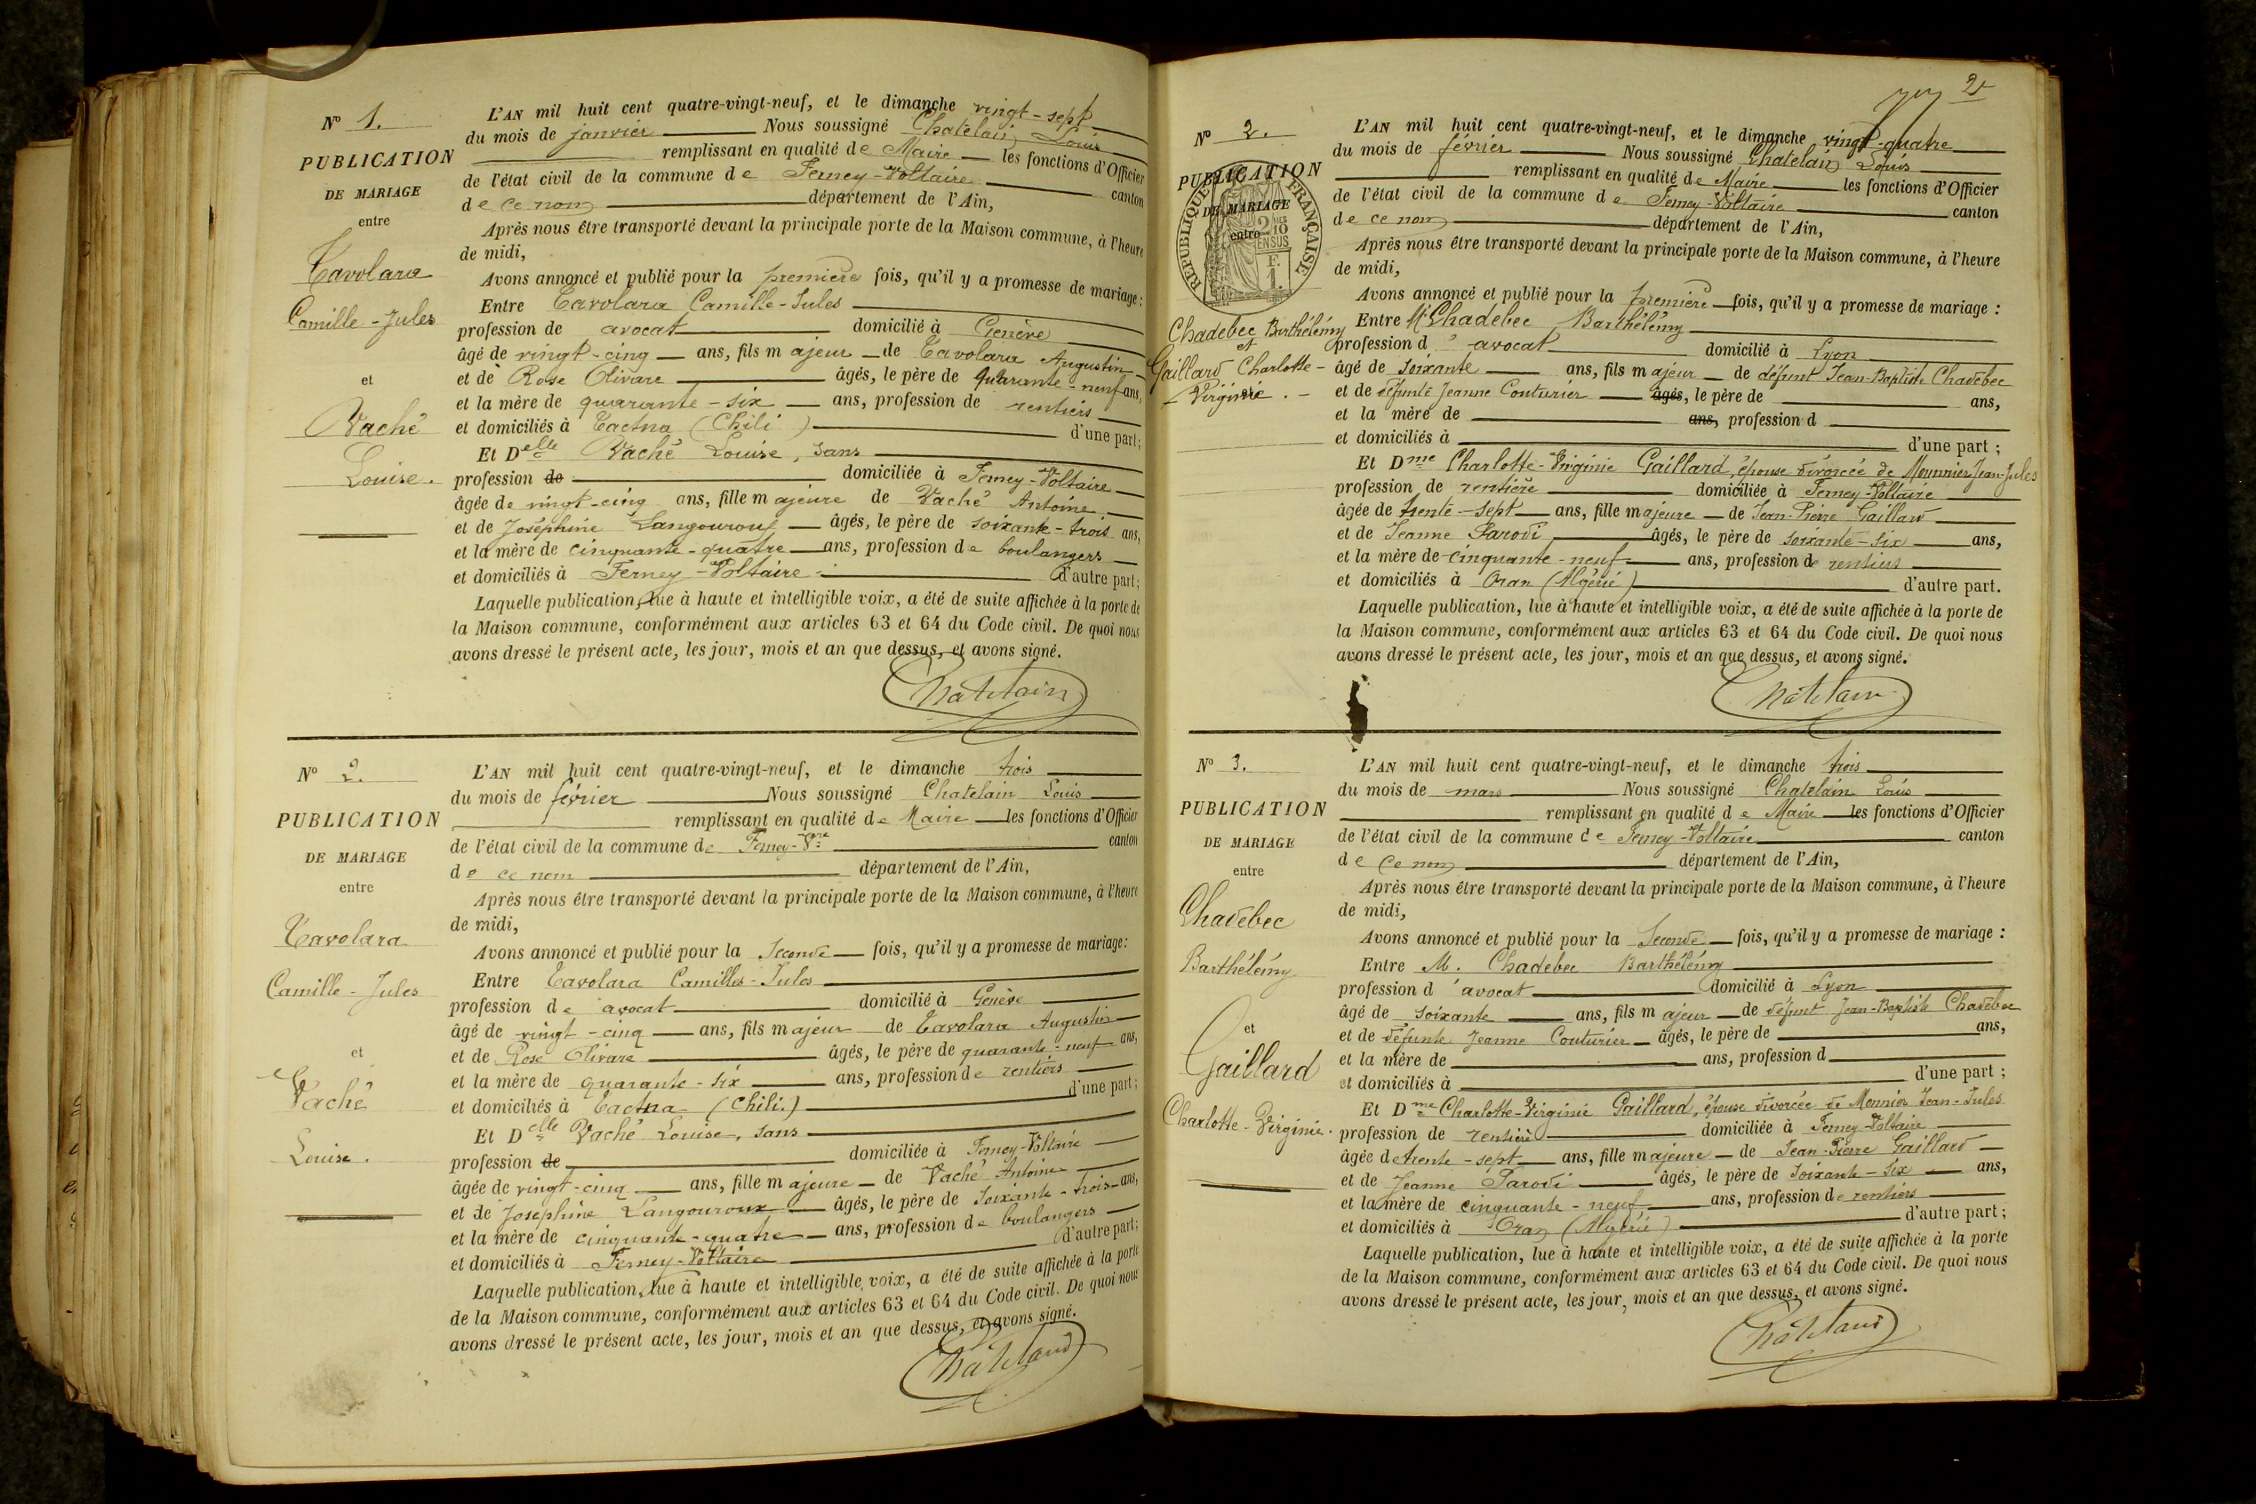 N° 1.
PUBLICATION
DE MARIAGE
entre
Tavolara
Camille-Jules
et
Vaché
Louise.
L'AN mil huit cent quatre-vingt-neuf, et le dimanche vingt-sept
du mois de janvier Nous soussigné Chatelain Louis
remplissant en qualité de Maire les fonctions d'Officier
de l'état civil de la commune de Ferney-Voltaire canton
de ce nom département de l'Ain,
Après nous être transporté devant la principale porte de la Maison commune, à l'heure
de midi,
Avons annoncé et publié pour la première fois, qu'il y a promesse de mariage :
Entre Tavolara Camille-Jules
profession de avocat domicilié à Genève
âgé de vingt-cinq ans, fils majeur de Tavolara Augustin
et de Rose Olivare âgés, le père de quarante-neuf ans,
et la mère de quarante-six ans, profession de rentiers
et domiciliés à Tacna (Chili) d'une part ;
Et Delle Vaché Louise, sans
profession de domiciliée à Ferney-Voltaire
âgée de vingt-cinq ans, fille majeure de Vaché Antoine
et de Joséphine Langouroux âgés, le père de soixante-trois ans,
et la mère de cinquante-quatre ans, profession de boulangers
et domiciliés à Ferney-Voltaire d'autre part ;
Laquelle publication, lue à haute et intelligible voix, a été de suite affichée à la porte de
la Maison commune, conformément aux articles 63 et 64 du Code civil. De quoi nous
avons dressé le présent acte, les jour, mois et an que dessus, et avons signé.
Chatelain
N° 2.
PUBLICATION
DE MARIAGE
entre
Tavolara
Camille-Jules
et
Vaché
Louise.
L'AN mil huit cent quatre-vingt-neuf, et le dimanche trois
du mois de février Nous soussigné Chatelain Louis
remplissant en qualité de Maire les fonctions d'Officier
de l'état civil de la commune de Ferney-Vre canton
de ce nom département de l'Ain,
Après nous être transporté devant la principale porte de la Maison commune, à l'heure
de midi,
Avons annoncé et publié pour la Seconde fois, qu'il y a promesse de mariage :
Entre Tavolara Camille-Jules
profession de avocat domicilié à Genève
âgé de vingt-cinq ans, fils majeur de Tavolara Augustin
et de Rose Olivare âgés, le père de quarante-neuf ans,
et la mère de quarante-six ans, profession de rentiers
et domiciliés à Tacna (Chili.) d'une part ;
Et Delle Vaché Louise, sans
profession de domiciliée à Ferney-Voltaire
âgée de vingt-cinq ans, fille majeure de Vaché Antoine
et de Joséphine Langouroux âgés, le père de soixante-trois ans,
et la mère de cinquante-quatre ans, profession de boulangers
et domiciliés à Ferney-Voltaire d'autre part ;
Laquelle publication, lue à haute et intelligible voix, a été de suite affichée à la porte
de la Maison commune, conformément aux articles 63 et 64 du Code civil. De quoi nous
avons dressé le présent acte, les jour, mois et an que dessus, et avons signé.
Chatelain
2
N° 2.
PUBLICATION
DE MARIAGE
entre
RÉPUBLIQUE FRANÇAISE
2/10 EN SUS
F.
1.
Chadebec Barthélémy
et
Gaillard Charlotte-
Virginie.
L'AN mil huit cent quatre-vingt-neuf, et le dimanche vingt-quatre
du mois de février Nous soussigné Chatelain Louis
remplissant en qualité de Maire les fonctions d'Officier
de l'état civil de la commune de Ferney-Voltaire canton
de ce nom département de l'Ain,
Après nous être transporté devant la principale porte de la Maison commune, à l'heure
de midi,
Avons annoncé et publié pour la première fois, qu'il y a promesse de mariage :
Entre M. Chadebec Barthélémy
profession d'avocat domicilié à Lyon
âgé de soixante ans, fils majeur de défunt Jean-Baptiste Chadebec
et de défunte Jeanne Couturier âgés, le père de ans,
et la mère de ans, profession d
et domiciliés à d'une part ;
Et Dme Charlotte-Virginie Gaillard, épouse divorcée de Mounnier Jean-Jules
profession de rentière domiciliée à Ferney-Voltaire
âgée de trente-sept ans, fille majeure de Jean-Pierre Gaillard
et de Jeanne Parodi âgés, le père de soixante-six ans,
et la mère de cinquante-neuf ans, profession de rentiers
et domiciliés à Oran (Algérie) d'autre part.
Laquelle publication, lue à haute et intelligible voix, a été de suite affichée à la porte de
la Maison commune, conformément aux articles 63 et 64 du Code civil. De quoi nous
avons dressé le présent acte, les jour, mois et an que dessus, et avons signé.
Chatelain
N° 3.
PUBLICATION
DE MARIAGE
entre
Chadebec
Barthélémy
et
Gaillard
Charlotte-Virginie.
L'AN mil huit cent quatre-vingt-neuf, et le dimanche trois
du mois de mars Nous soussigné Chatelain Louis
remplissant en qualité de Maire les fonctions d'Officier
de l'état civil de la commune de Ferney-Voltaire canton
de ce nom département de l'Ain,
Après nous être transporté devant la principale porte de la Maison commune, à l'heure
de midi,
Avons annoncé et publié pour la Seconde fois, qu'il y a promesse de mariage :
Entre M. Chadebec Barthélémy
profession d'avocat domicilié à Lyon
âgé de soixante ans, fils majeur de défunt Jean-Baptiste Chadebec
et de défunte Jeanne Couturier âgés, le père de ans,
et la mère de ans, profession d
et domiciliés à d'une part ;
Et Dme Charlotte-Virginie Gaillard, épouse divorcée de Monnier Jean-Jules
profession de rentière domiciliée à Ferney-Voltaire
âgée de trente-sept ans, fille majeure de Jean-Pierre Gaillard
et de Jeanne Parodi âgés, le père de soixante-six ans,
et la mère de cinquante-neuf ans, profession de rentiers
et domiciliés à Oran (Algérie) d'autre part ;
Laquelle publication, lue à haute et intelligible voix, a été de suite affichée à la porte
de la Maison commune, conformément aux articles 63 et 64 du Code civil. De quoi nous
avons dressé le présent acte, les jour, mois et an que dessus, et avons signé.
Chatelain